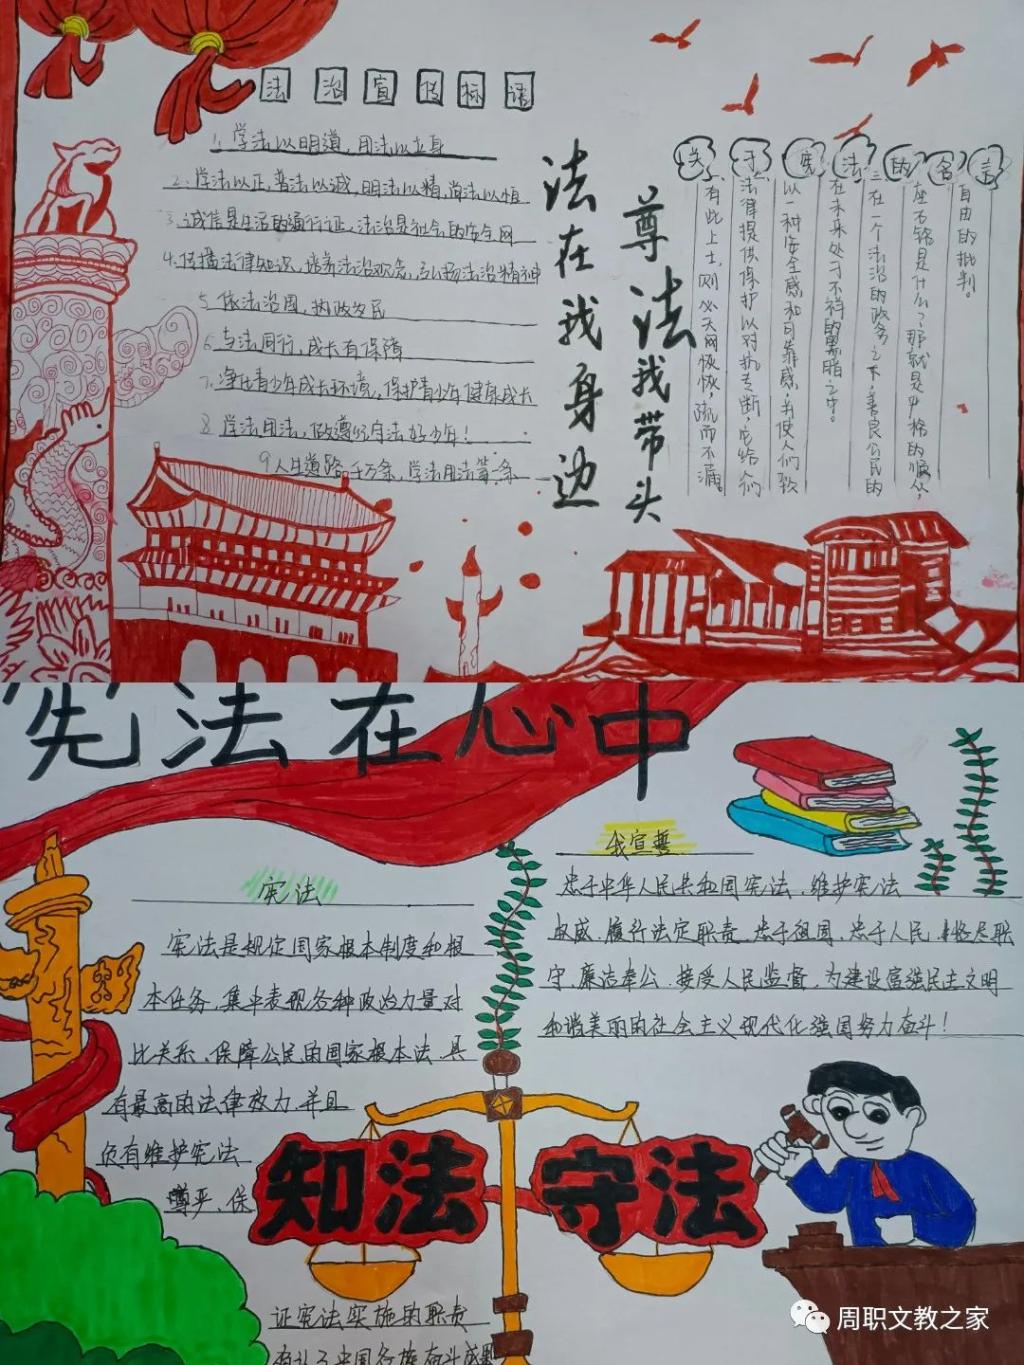 法治宣传标语
1. 学法以明道，用法以立身
2. 学法以正，普法以诚，明法以精，尚法以恒
3. 诚信是生活的通行证，法治是社会的安全网
4. 传播法律知识，培养法治观念，弘扬法治精神
5. 依法治国，执政为民
6. 与法同行，成长有保障
7. 净化青少年成长环境，保护青少年健康成长
8. 学法用法，做遵纪守法好少年！
9 人生道路千万条，学法用法第一条
法在我身边
尊法我带头
关于宪法的名言
自由的批判。
座右铭是什么？那就是中
三在一个法治的政务之下，善良公民的
在未来处于不祥的
以一种安全感和可靠感，并使人们
法律提供保护以对抗专断，它给人们
有此上士，则必天网恢恢，疏而不漏。
宪法在心中
宪法
宪法是规定国家根本制度和根
本任务、集中表现各种政治力量对
比关系、保障公民的国家根本法，具
有最高的法律效力，并且
负有维护宪法
尊严、保
证宪法实施的职责
我宣誓
忠于中华人民共和国宪法，维护宪法
权威，履行法定职责，忠于祖国，忠于人民，恪尽职
守，廉洁奉公，接受人民监督，为建设富强民主文明
和谐美丽的社会主义现代化强国努力奋斗！
知法 守法
周职文教之家